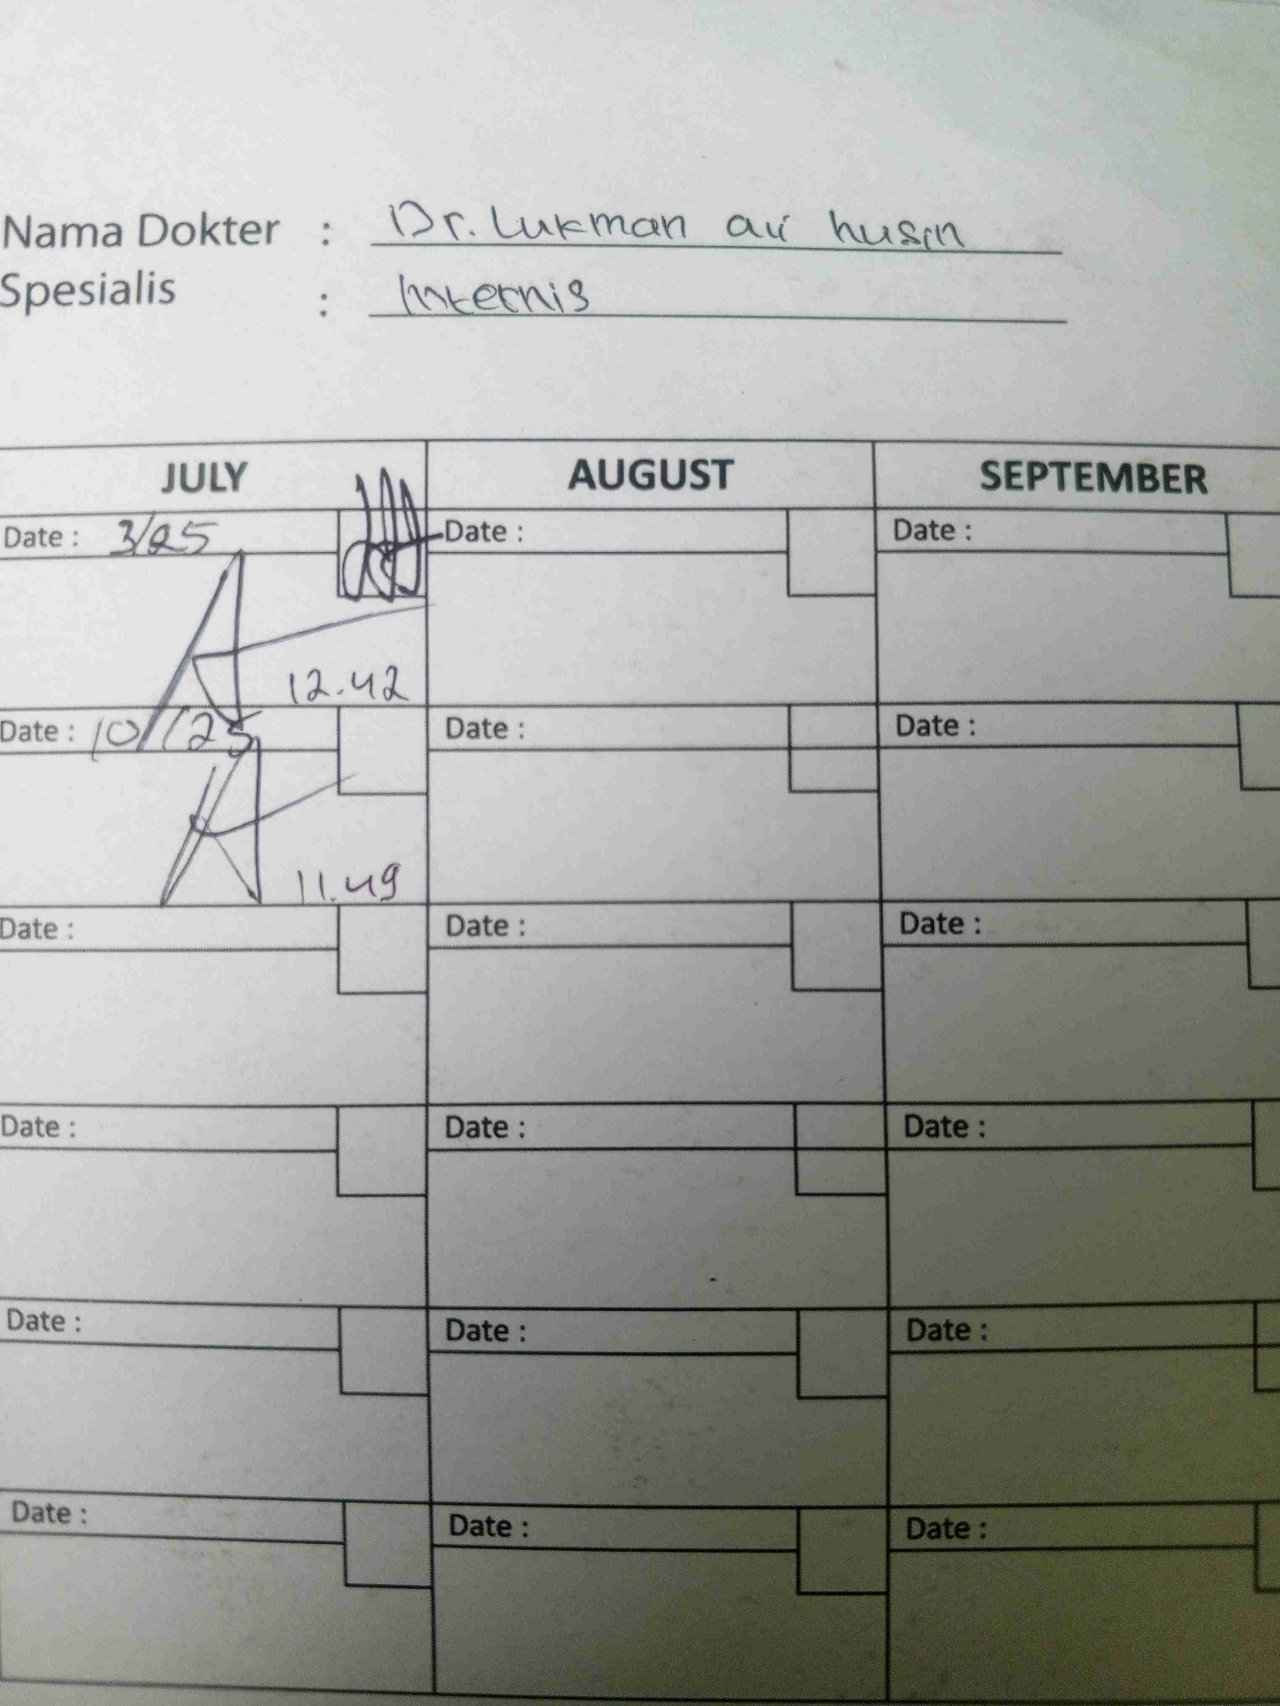 Nama Dokter : Dr. Lukman ali husin
Spesialis : Internis
JULY AUGUST SEPTEMBER
Date : 3/25 Date : Date :
12.42
Date : 10/25 Date : Date :
11.49
Date : Date : Date :
Date : Date : Date :
Date : Date : Date :
Date : Date : Date :